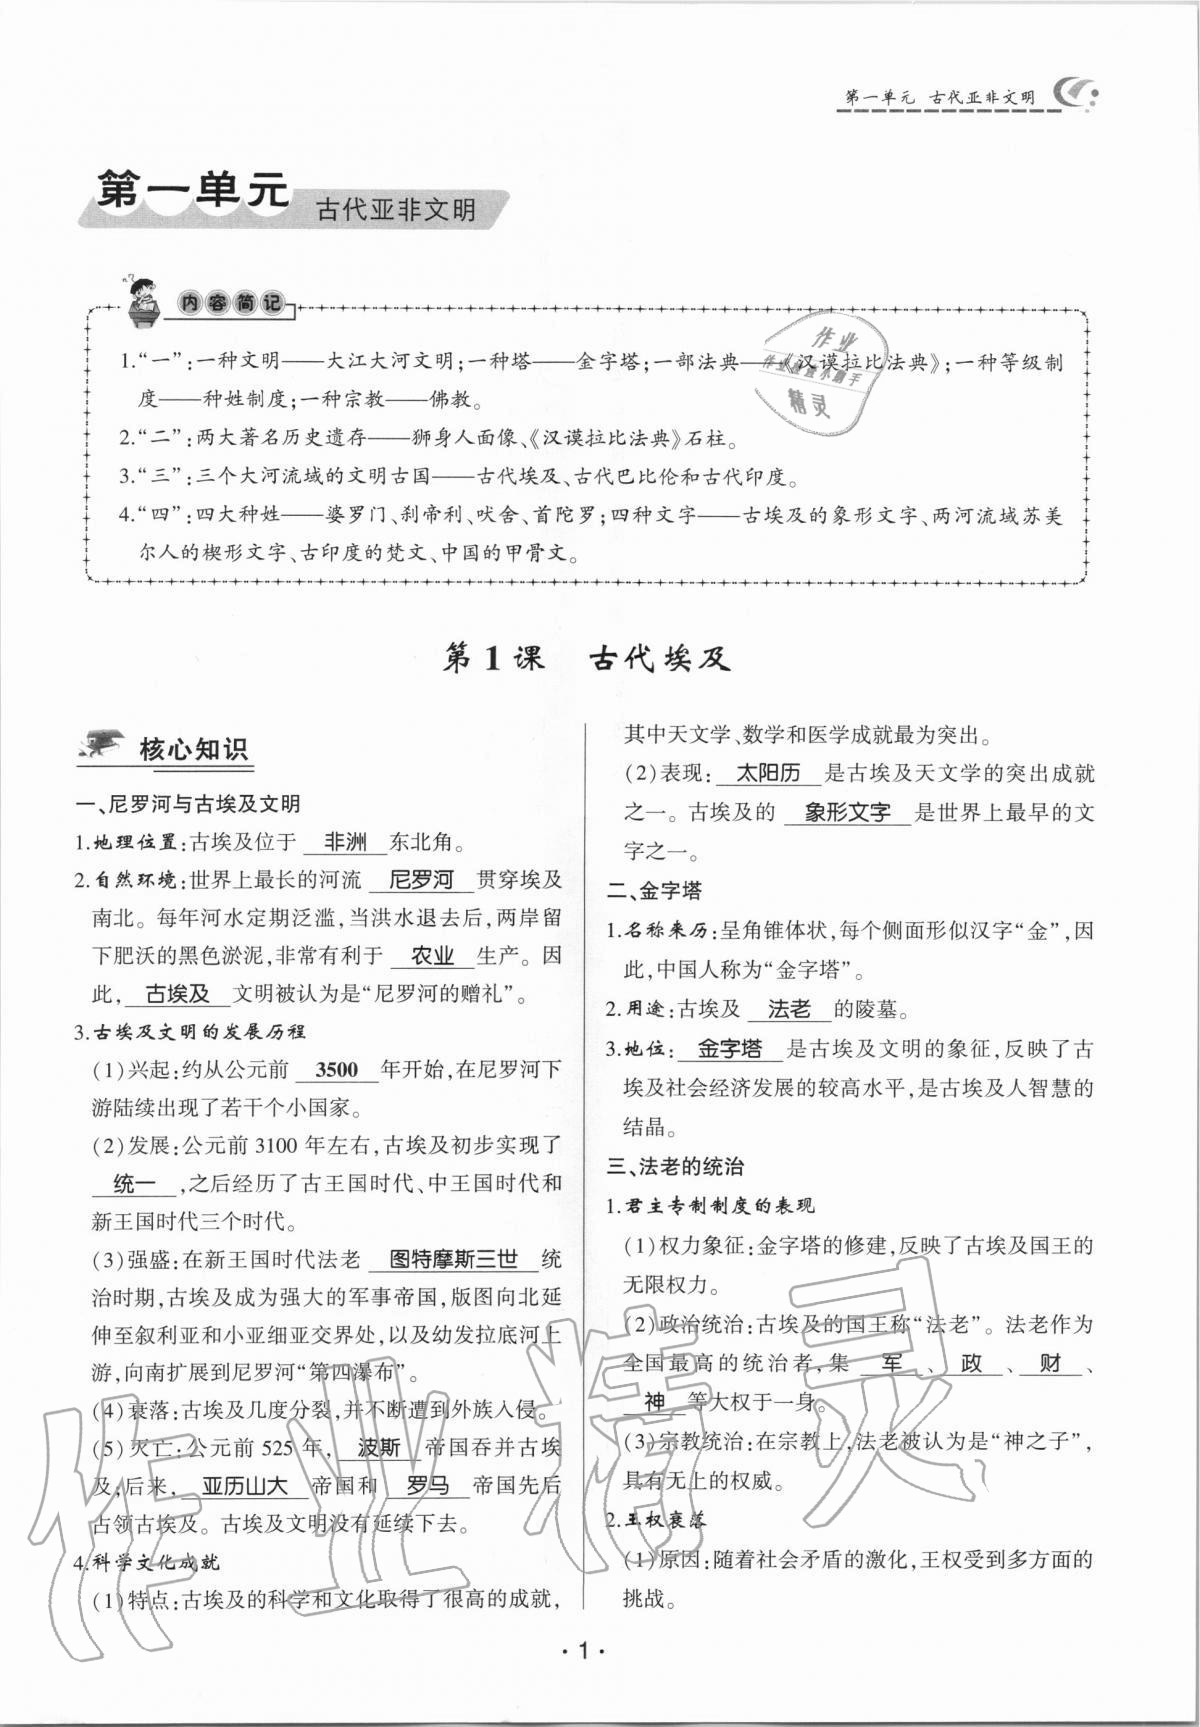 第一单元 古代亚非文明
第一单元
古代亚非文明
内容简记
1.“一”:一种文明——大江大河文明;一种塔——金字塔;一部法典——《汉谟拉比法典》;一种等级制
度——种姓制度;一种宗教——佛教。
2.“二”:两大著名历史遗存——狮身人面像、《汉谟拉比法典》石柱。
3.“三”:三个大河流域的文明古国——古代埃及、古代巴比伦和古代印度。
4.“四”:四大种姓——婆罗门、刹帝利、吠舍、首陀罗;四种文字——古埃及的象形文字、两河流域苏美
尔人的楔形文字、古印度的梵文、中国的甲骨文。
作业
精灵
第1课 古代埃及
核心知识
一、尼罗河与古埃及文明
1.地理位置:古埃及位于 非洲 东北角。
2.自然环境:世界上最长的河流 尼罗河 贯穿埃及
南北。每年河水定期泛滥,当洪水退去后,两岸留
下肥沃的黑色淤泥,非常有利于 农业 生产。因
此, 古埃及 文明被认为是“尼罗河的赠礼”。
3.古埃及文明的发展历程
(1)兴起:约从公元前 3500 年开始,在尼罗河下
游陆续出现了若干个小国家。
(2)发展:公元前 3100 年左右,古埃及初步实现了
统一 ,之后经历了古王国时代、中王国时代和
新王国时代三个时代。
(3)强盛:在新王国时代法老 图特摩斯三世 统
治时期,古埃及成为强大的军事帝国,版图向北延
伸至叙利亚和小亚细亚交界处,以及幼发拉底河上
游,向南扩展到尼罗河“第四瀑布”。
(4)衰落:古埃及几度分裂,并不断遭到外族入侵。
(5)灭亡:公元前 525 年, 波斯 帝国吞并古埃
及,后来, 亚历山大 帝国和 罗马 帝国先后
占领古埃及。古埃及文明没有延续下去。
4.科学文化成就
(1)特点:古埃及的科学和文化取得了很高的成就,
其中天文学、数学和医学成就最为突出。
(2)表现: 太阳历 是古埃及天文学的突出成就
之一。古埃及的 象形文字 是世界上最早的文
字之一。
二、金字塔
1.名称来历:呈角锥体状,每个侧面形似汉字“金”,因
此,中国人称为“金字塔”。
2.用途:古埃及 法老 的陵墓。
3.地位: 金字塔 是古埃及文明的象征,反映了古
埃及社会经济发展的较高水平,是古埃及人智慧的
结晶。
三、法老的统治
1.君主专制制度的表现
(1)权力象征:金字塔的修建,反映了古埃及国王的
无限权力。
(2)政治统治:古埃及的国王称“法老”。法老作为
全国最高的统治者,集 军 、 政 、 财 、
神 等大权于一身。
(3)宗教统治:在宗教上,法老被认为是“神之子”,
具有无上的权威。
2.王权衰落
(1)原因:随着社会矛盾的激化,王权受到多方面的
挑战。
作业精灵
·1·